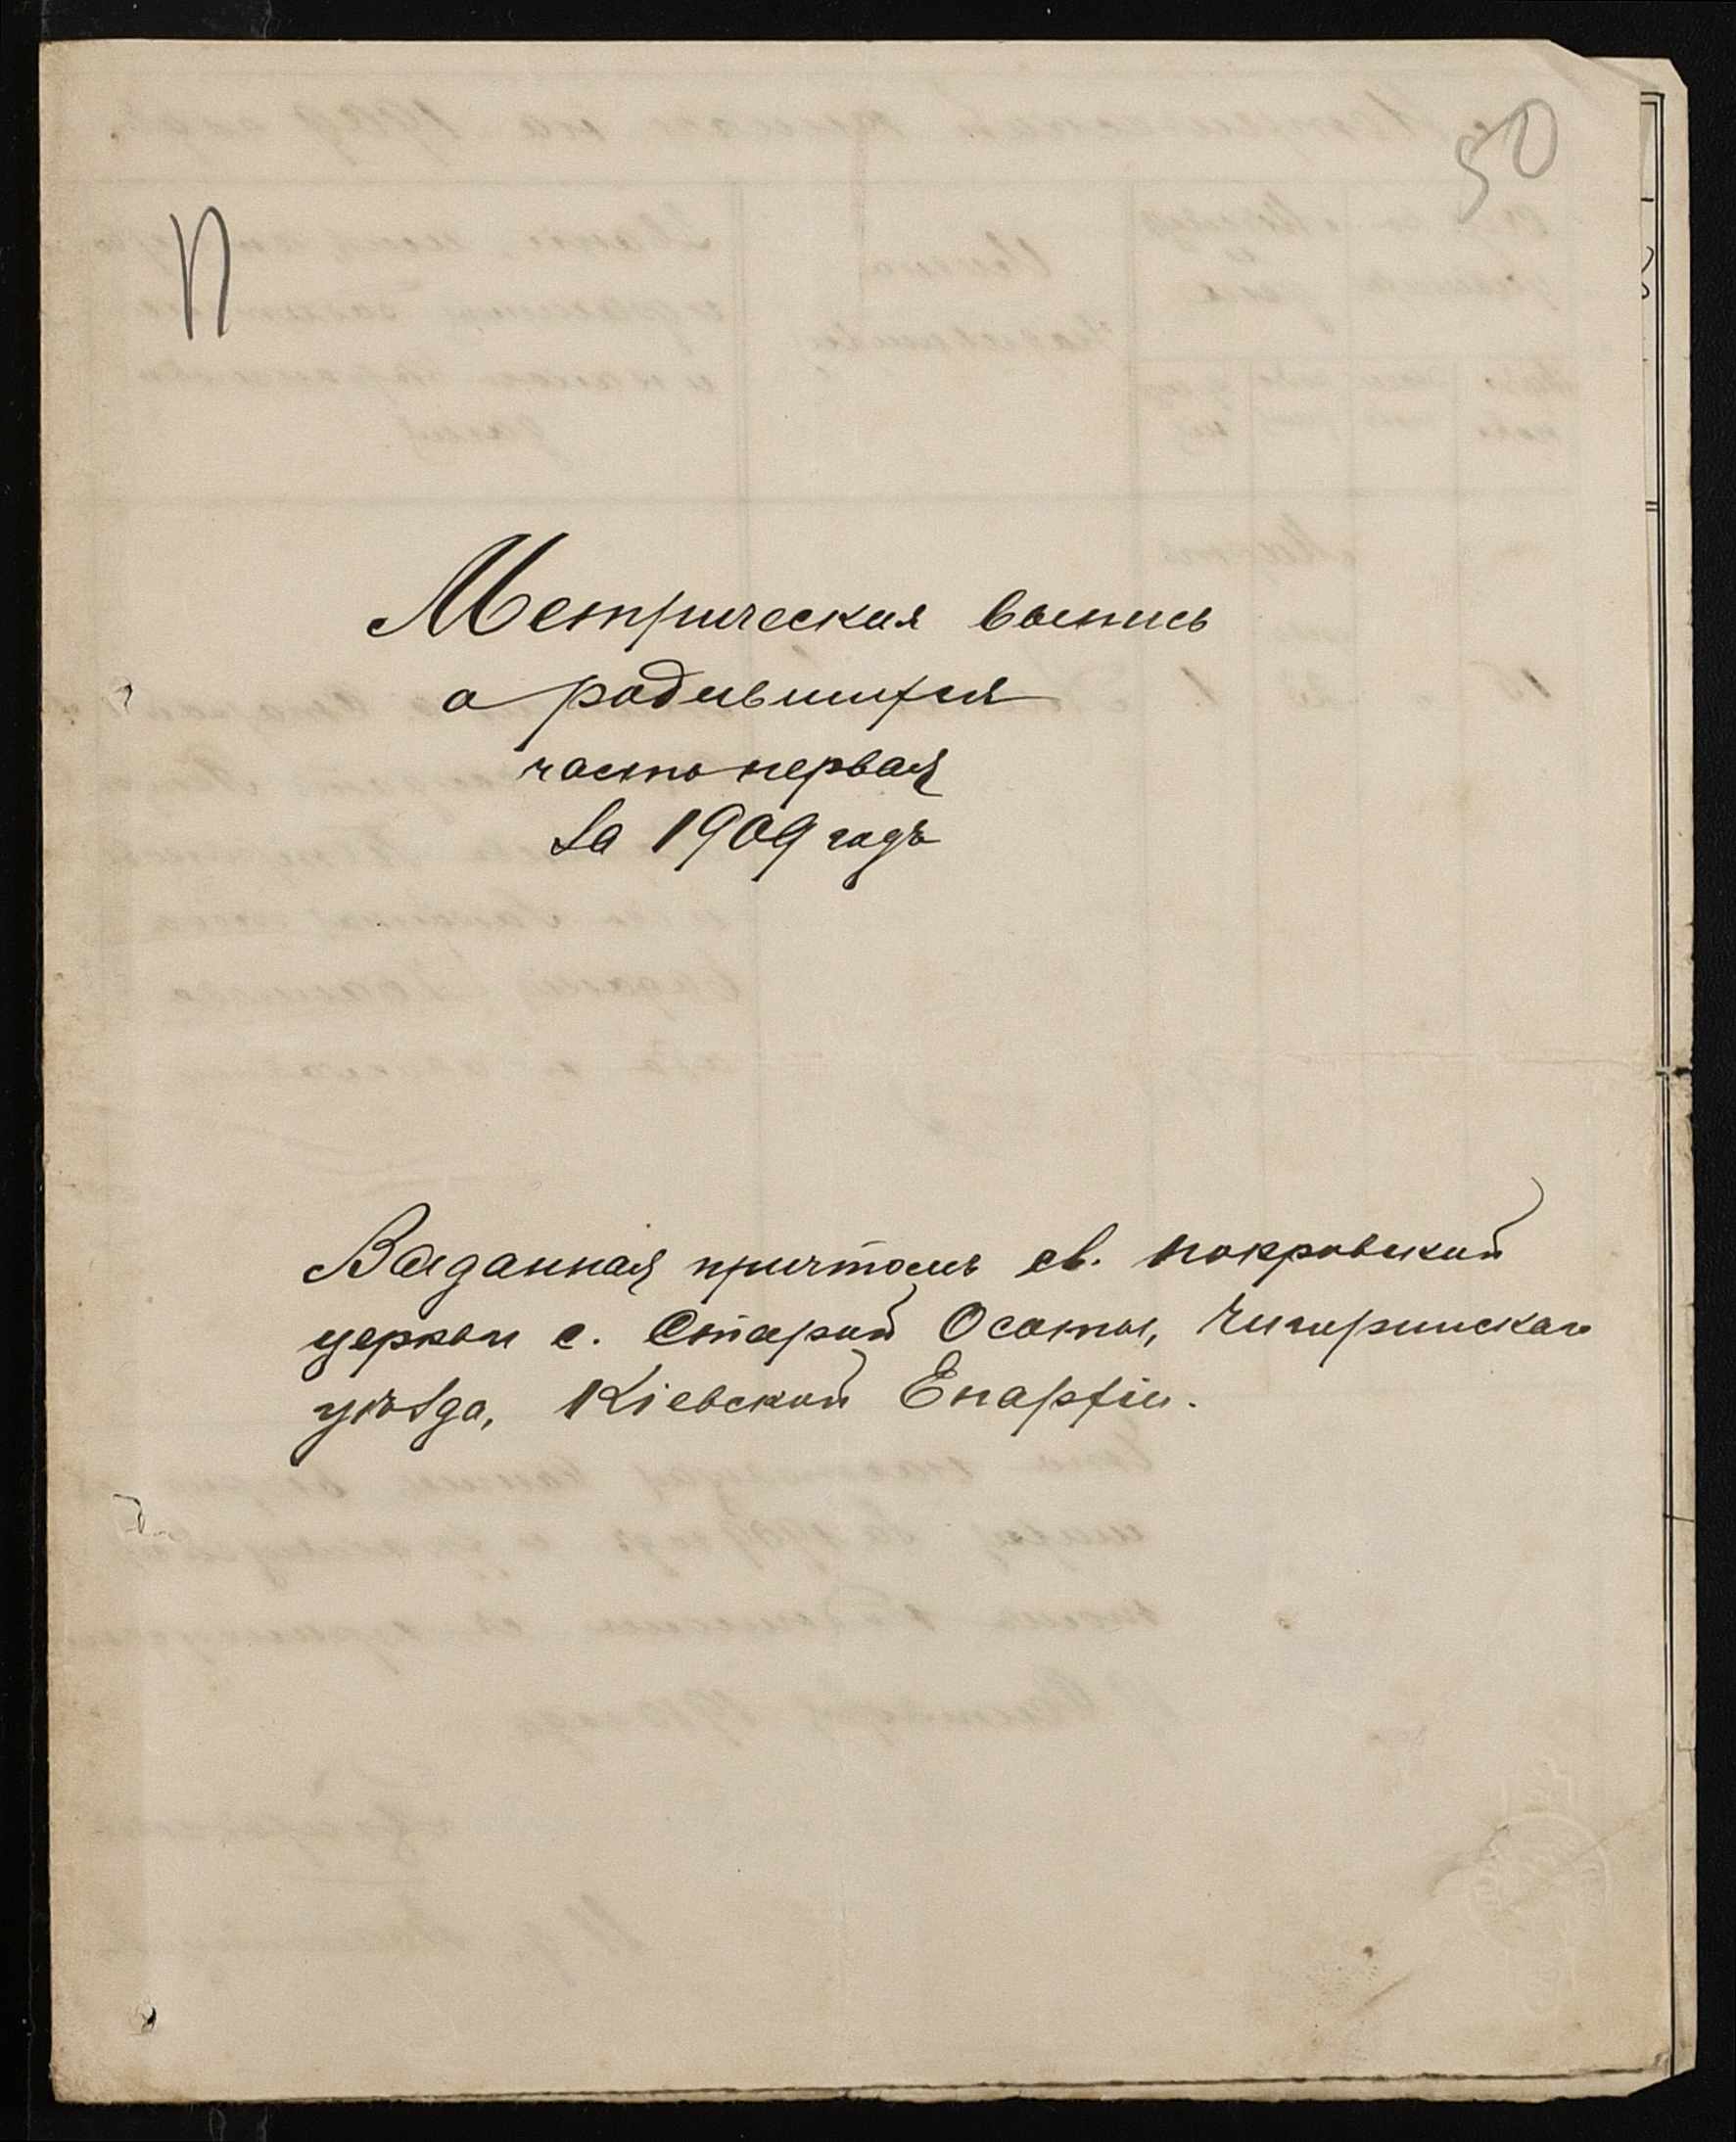 50
П
Метрическая выпись
о родившихся
часть первая
За 1909 годъ
Выданная причтомъ св. Покровской
церкви с. Старой Осоты, Чигиринскаго
уѣзда, Кіевской Епархіи.